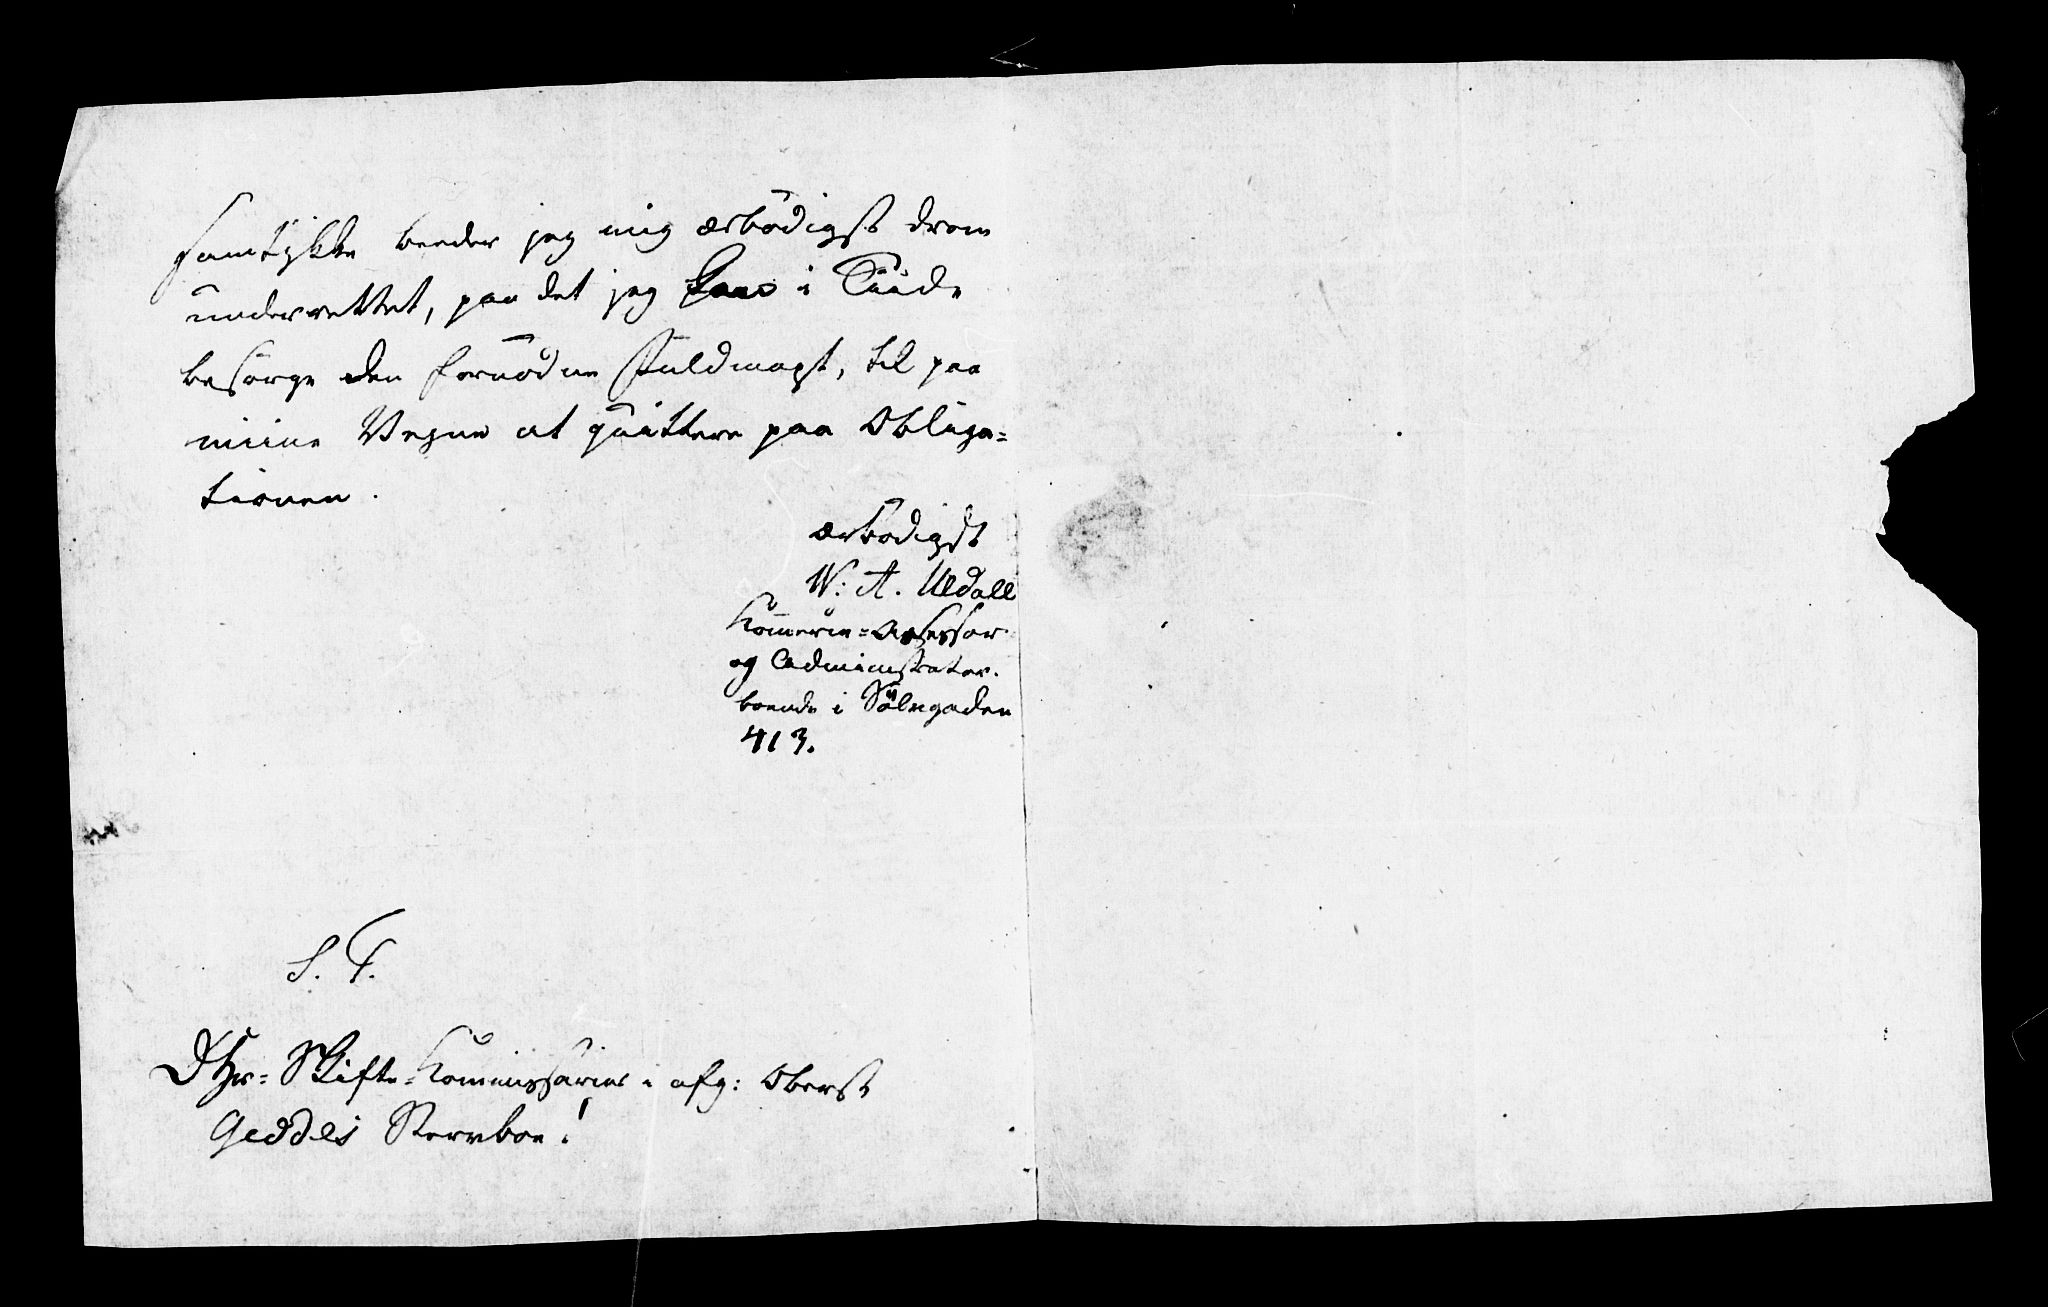 samtykke beeder jeg mig ærbödigst derom
underrettet, paa det jeg kan i Tiide
besörge den fornödne Fuldmagt, til paa
miine Vegne at quittere paa Obliga=
tionen.
ærbödigst
W: A. Uldall
Kammer=Assessor
og Administrator.
boende i Sölvgaden
413.
S. T.
DHr= Skifte=Kommissarier i afg: Oberst
Geddes Stervboe!